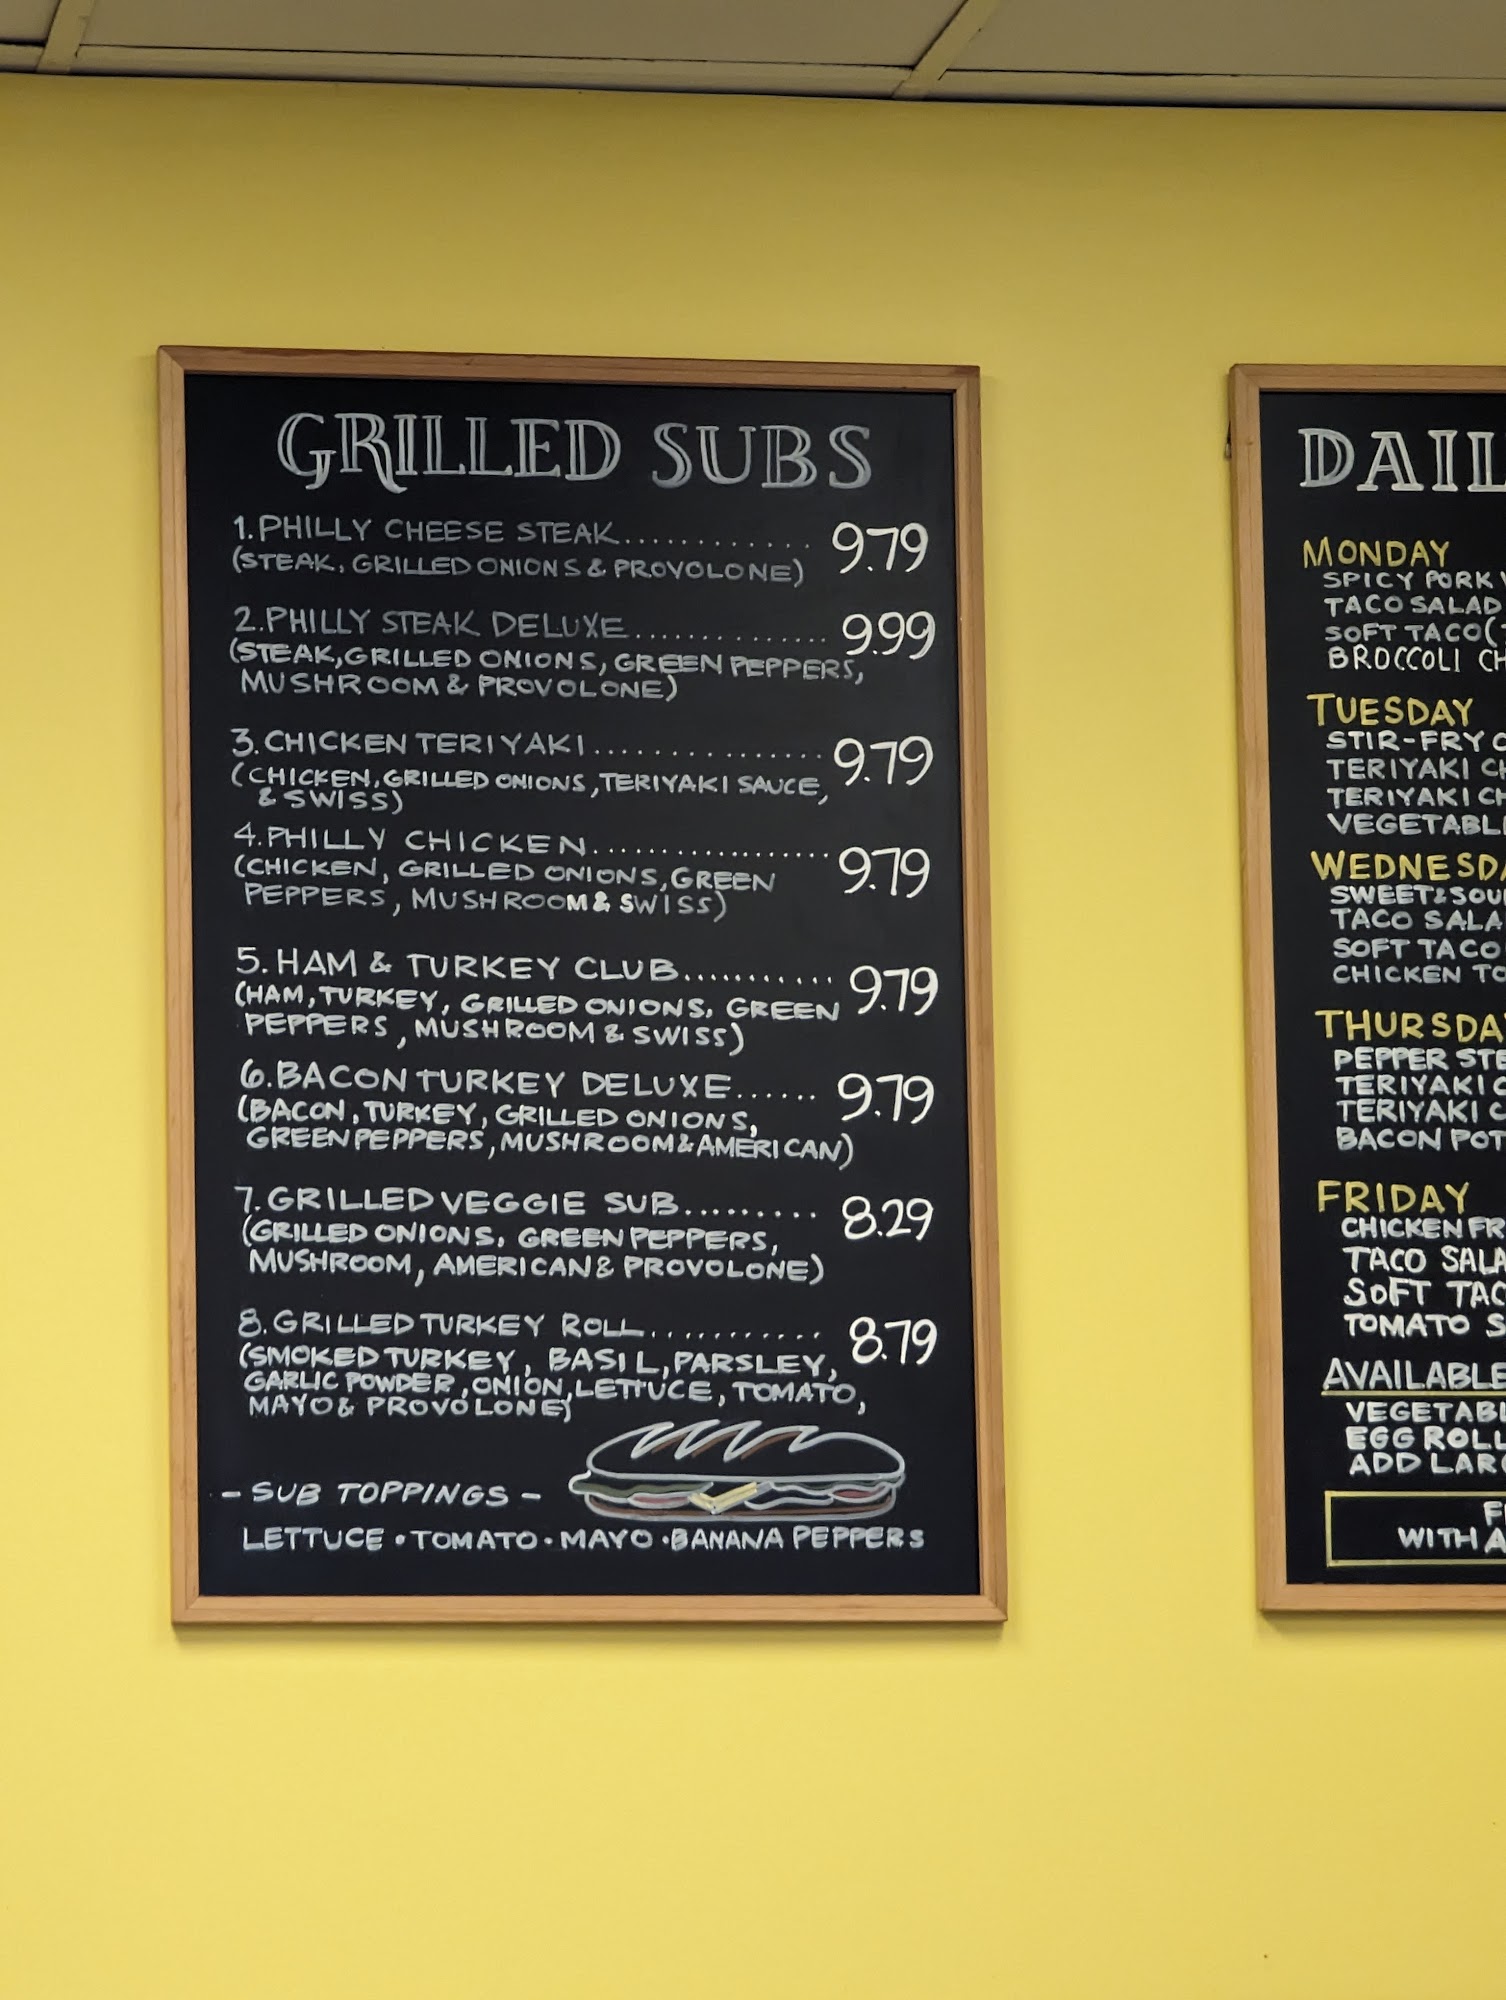 GRILLED SUBS
1. PHILLY CHEESE STEAK............ 9.79
(STEAK, GRILLED ONIONS & PROVOLONE)
2. PHILLY STEAK DELUXE.............. 9.99
(STEAK, GRILLED ONIONS, GREEN PEPPERS,
MUSHROOM & PROVOLONE)
3. CHICKEN TERIYAKI................ 9.79
(CHICKEN, GRILLED ONIONS, TERIYAKI SAUCE,
& SWISS)
4. PHILLY CHICKEN.................. 9.79
(CHICKEN, GRILLED ONIONS, GREEN
PEPPERS, MUSHROOM & SWISS)
5. HAM & TURKEY CLUB........... 9.79
(HAM, TURKEY, GRILLED ONIONS, GREEN
PEPPERS, MUSHROOM & SWISS)
6. BACON TURKEY DELUXE...... 9.79
(BACON, TURKEY, GRILLED ONIONS,
GREEN PEPPERS, MUSHROOM & AMERICAN)
7. GRILLED VEGGIE SUB......... 8.29
(GRILLED ONIONS, GREEN PEPPERS,
MUSHROOM, AMERICAN & PROVOLONE)
8. GRILLED TURKEY ROLL........... 8.79
(SMOKED TURKEY, BASIL, PARSLEY,
GARLIC POWDER, ONION, LETTUCE, TOMATO,
MAYO & PROVOLONE)
- SUB TOPPINGS -
LETTUCE • TOMATO • MAYO • BANANA PEPPERS
DAIL
MONDAY
SPICY PORK
TACO SALAD
SOFT TACO (
BROCCOLI CH
TUESDAY
STIR-FRY
TERIYAKI CH
TERIYAKI CH
VEGETABL
WEDNESDA
SWEET & SOU
TACO SALA
SOFT TACO
CHICKEN TO
THURSDAY
PEPPER STE
TERIYAKI
TERIYAKI
BACON POT
FRIDAY
CHICKEN FR
TACO SALA
SOFT TAC
TOMATO S
AVAILABLE
VEGETAB
EGG ROLL
ADD LARG
F
WITH A